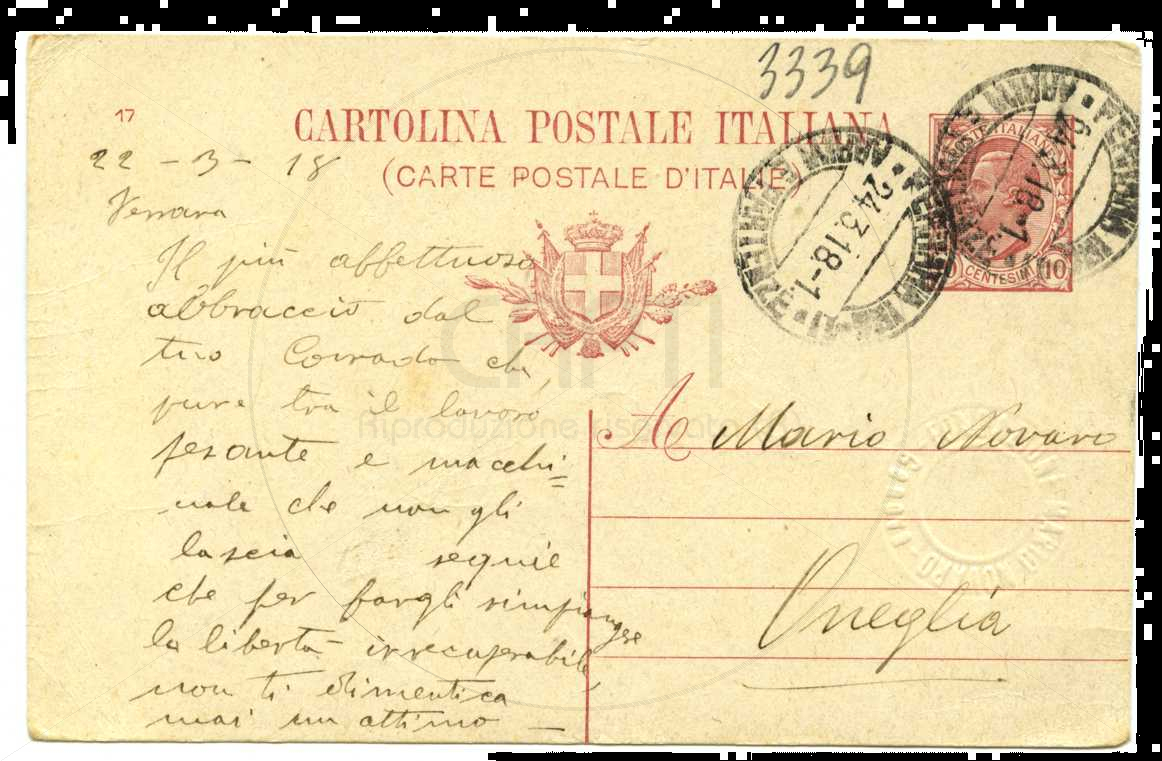 3339
17
CARTOLINA POSTALE ITALIANA
(CARTE POSTALE D'ITALIE)
22 - 3 - 18
Ferrara
Il più affettuoso
abbraccio dal
tuo Corrado che,
pure tra il lavoro
pesante e macchi=
nale che non gli
lascia requie
che per fargli rimpiangere
la libertà irrecuperabile,
non ti dimentica
mai un attimo —
POSTE ITALIANE
CENTESIMI 10
24.3.18-1
A Mario Novaro
Oneglia
Riproduzione riservata